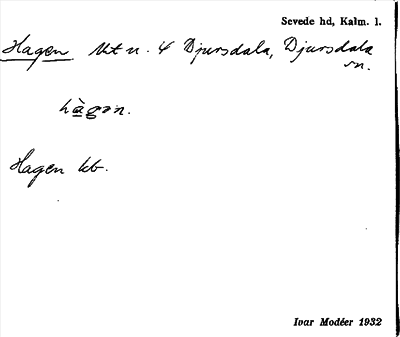 Sevede hd, Kalm. l.
Hagen Ut u. 4 Djursdala, Djursdala
sn.
hàgən.
Hagen kb.
Ivar Modéer 1932